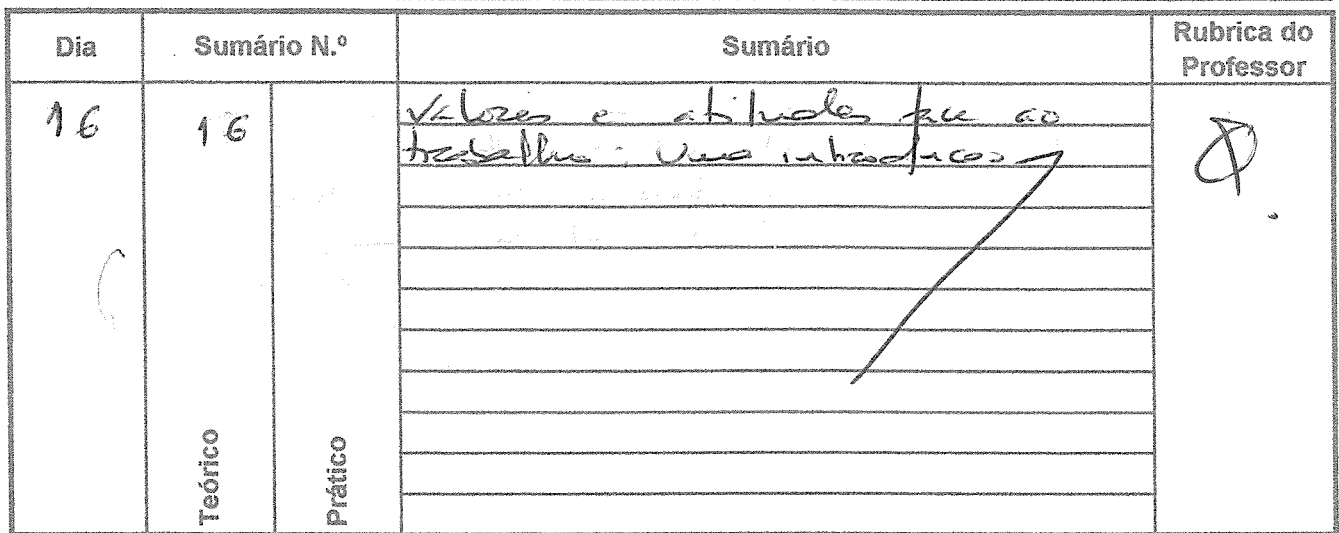 Dia
Sumário N.º
Sumário
Rubrica do
Professor
16
16
Valores e atitudes face ao
trabalho: Uma introducao
Teórico
Prático